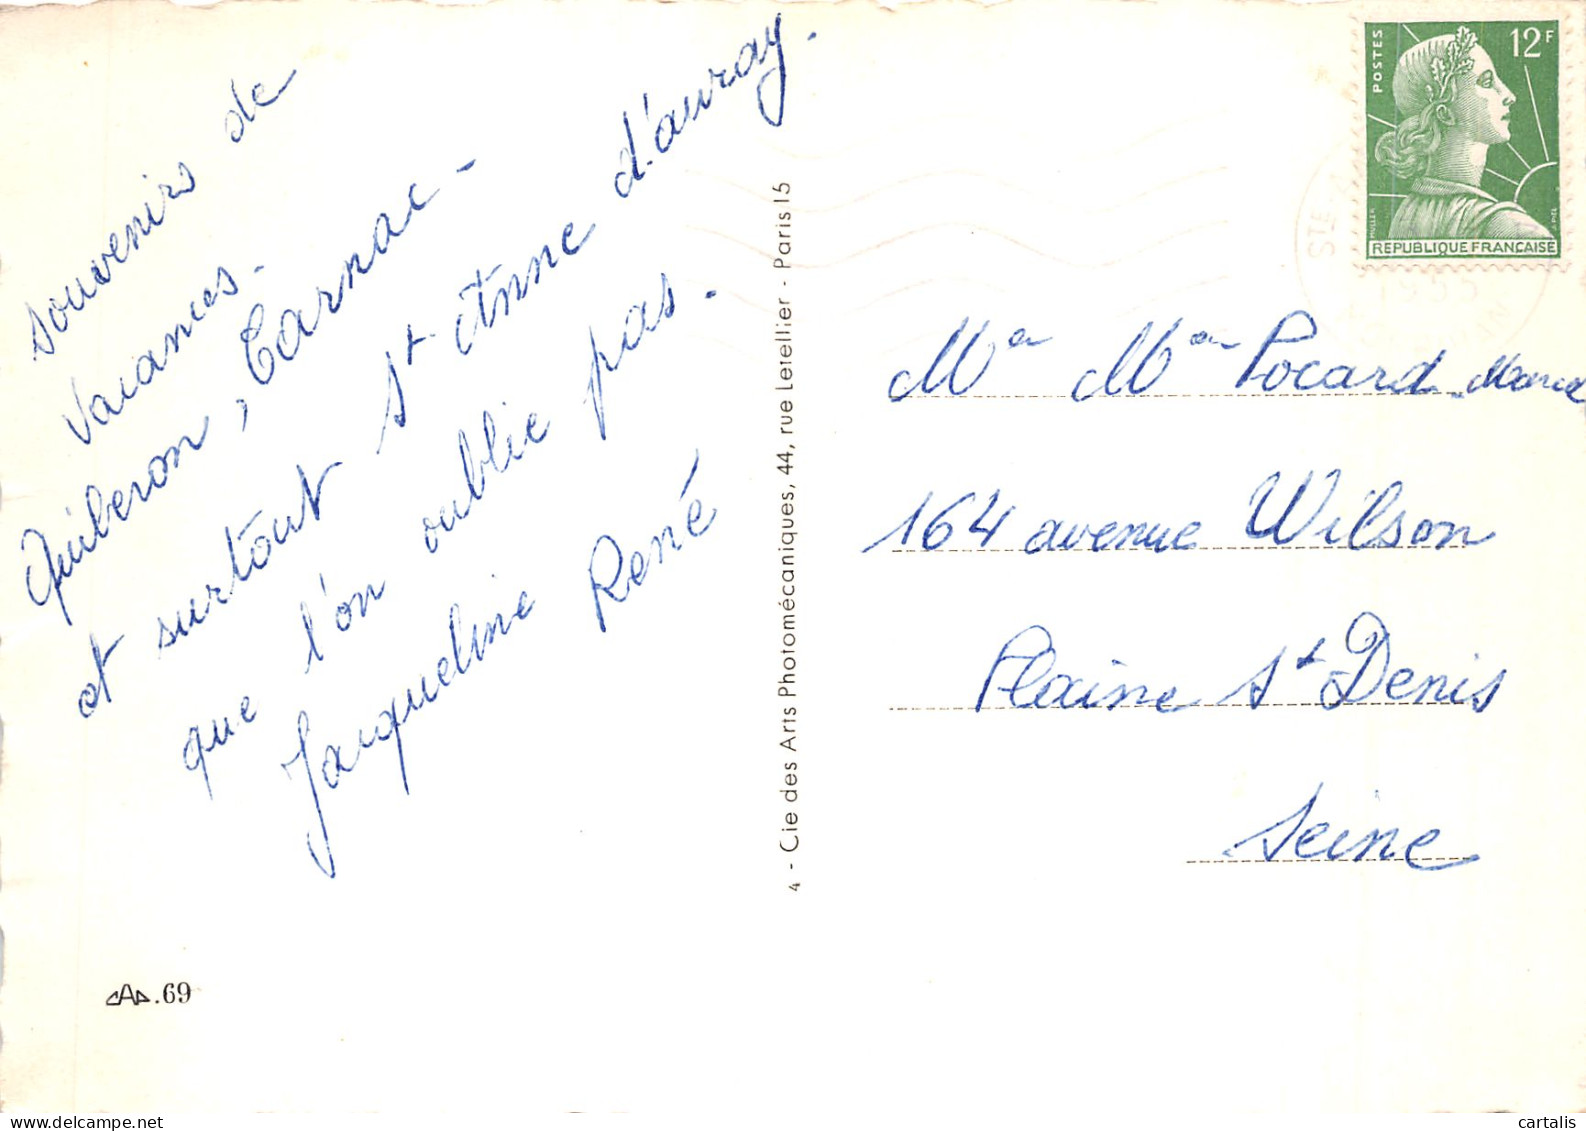 souvenirs de
vacances.
Quiberon, Carnac -
et surtout St Anne d'auray.
que l'on oublie pas.
Jacqueline René
CAP.69
4 - Cie des Arts Photomécaniques, 44, rue Letellier - Paris 15
POSTES
12F
MULLER
PIEL
REPUBLIQUE FRANÇAISE
STE
Mr Mme Pocard Marcel
164 avenue Wilson
Plaine St Denis
Seine
cartalis
delcampe.net